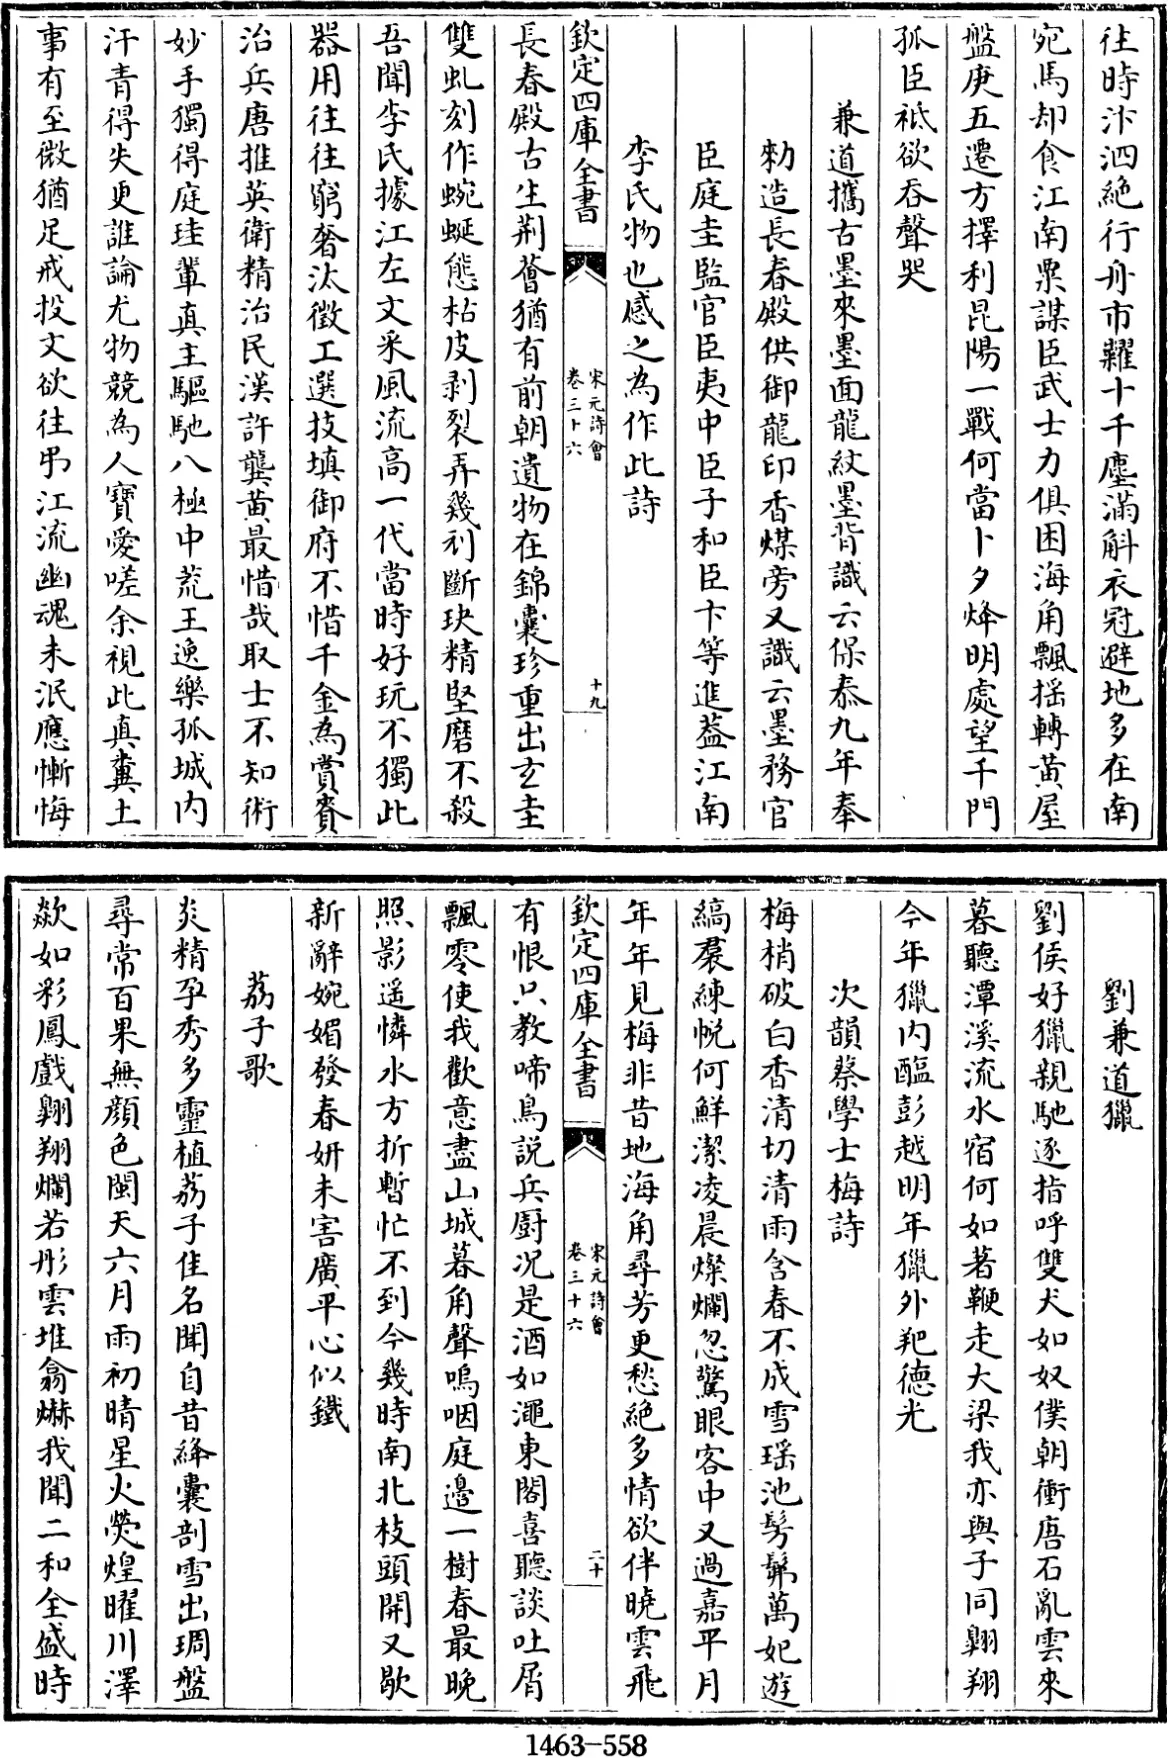 往時汴泗絶行舟市糶十千塵滿斛衣冠避地多在南
宛馬却食江南粟謀臣武士力俱困海角飄揺轉黄屋
盤庚五遷方擇利昆陽一戰何當卜夕烽明處望千門
孤臣祗欲吞聲哭
兼道攜古墨來墨面龍紋墨背識云保泰九年奉
勅造長春殿供御龍印香煤旁又識云墨務官
臣庭圭監官臣夷中臣子和臣卞等進葢江南
李氏物也感之為作此詩
欽定四庫全書
宋元詩會
卷三十六
十九
長春殿古生荆薈猶有前朝遺物在錦囊珍重出玄圭
雙虬刻作蜿蜒態枯皮剥裂弄幾利斷玦精堅磨不殺
吾聞李氏據江左文采風流高一代當時好玩不獨此
器用往往窮奢汰徵工選技填御府不惜千金為賞賚
治兵唐推英衛精治民漢許龔黄最惜哉取士不知術
妙手獨得庭珪輩真主驅馳八極中荒王逸樂孤城内
汗青得失更誰論尤物競為人寶愛嗟余視此真糞土
事有至微猶足戒投文欲往弔江流幽魂未泯應慚悔
劉兼道獵
劉侯好獵親馳逐指呼雙犬如奴僕朝衝唐石亂雲來
暮聽潭溪流水宿何如著鞭走大梁我亦與子同翺翔
今年獵内醢彭越明年獵外羓德光
次韻蔡學士梅詩
梅梢破白香清切清雨含春不成雪瑶池髣髴萬妃遊
縞裠練帨何鮮潔凌晨燦爛忽驚眼客中又過嘉平月
年年見梅非昔地海角尋芳更愁絶多情欲伴曉雲飛
欽定四庫全書
宋元詩會
卷三十六
二十
有恨只教啼鳥説兵厨况是酒如澠東閣喜聽談吐屑
飄零使我歡意盡山城暮角聲嗚咽庭邉一樹春最晚
照影遥憐水方折暫忙不到今幾時南北枝頭開又歇
新辭婉媚發春妍未害廣平心似鐵
荔子歌
炎精孕秀多靈植荔子佳名聞自昔絳囊剖雪出琱盤
尋常百果無顔色閩天六月雨初晴星火熒煌曜川澤
歘如彩鳳戲翺翔爛若彤雲堆翕赫我聞二和全盛時
1463-558